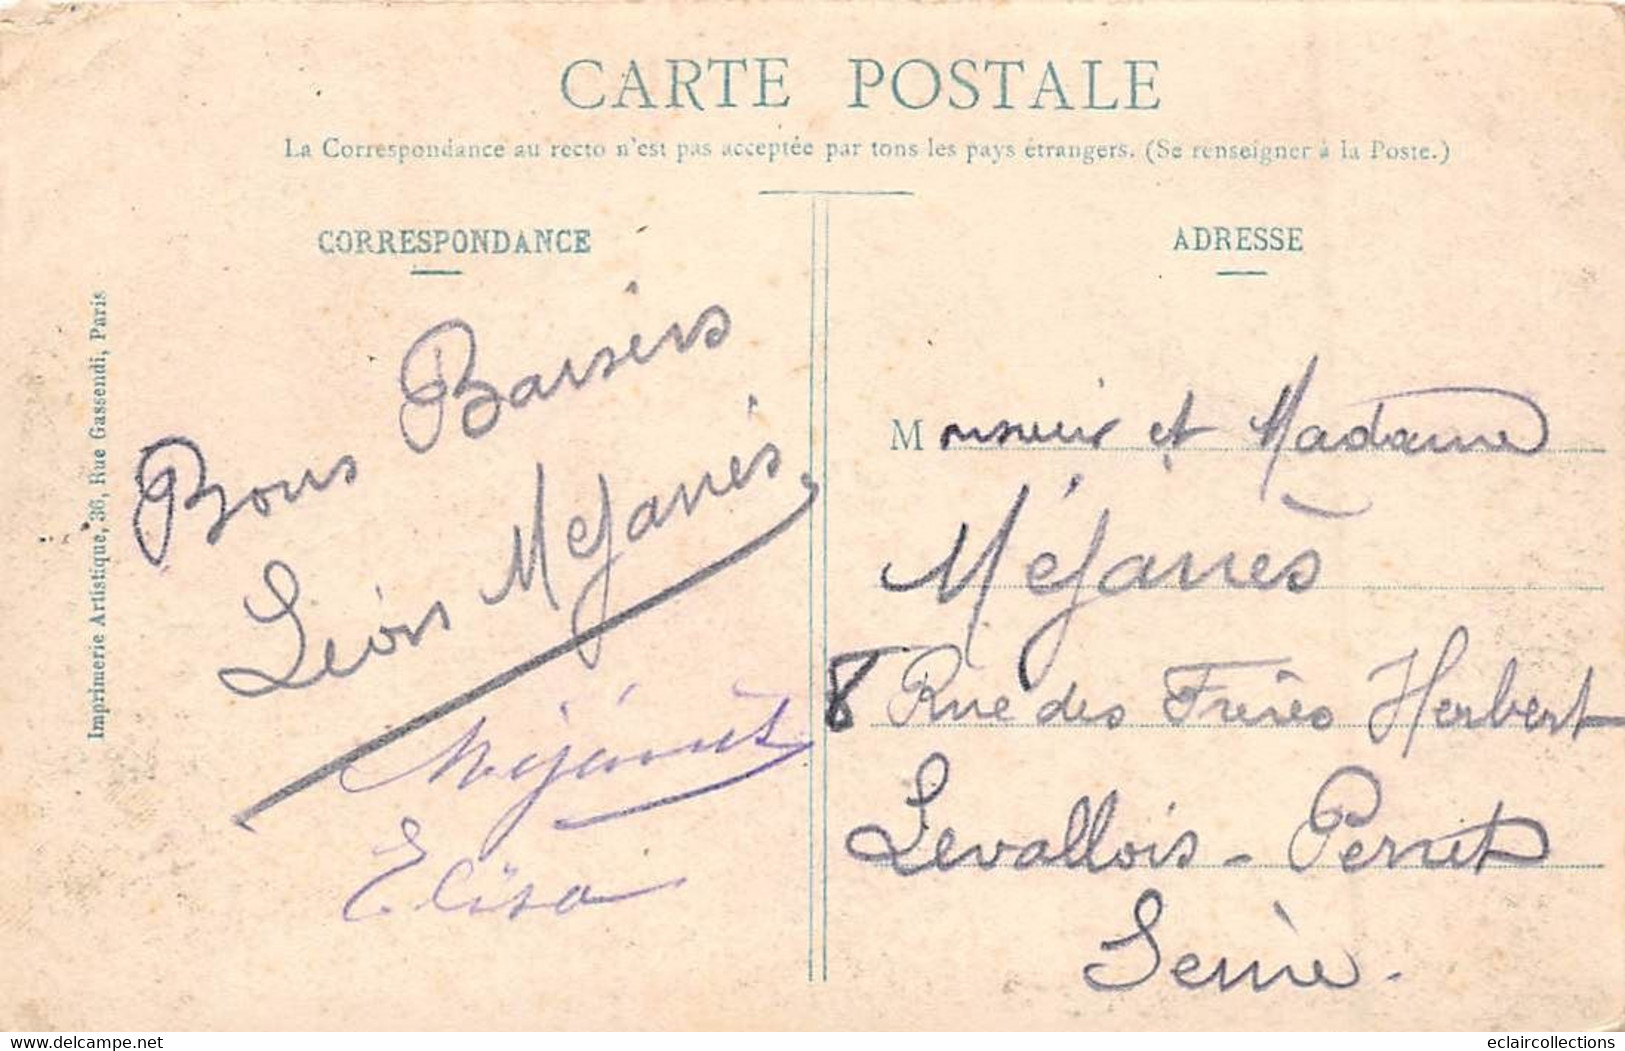 CARTE POSTALE
La Correspondance au recto n'est pas acceptée par tous les pays étrangers. (Se renseigner à la Poste.)
CORRESPONDANCE
Bons Baisers
Léon Méjanès
Elisa
Imprimerie Artistique, 36, Rue Gassendi, Paris
ADRESSE
Monsieur et Madame
Méjanès
8 Rue des Frères Herbert
Levallois-Perret
Seine.
www.delcampe.net
eclaircollections